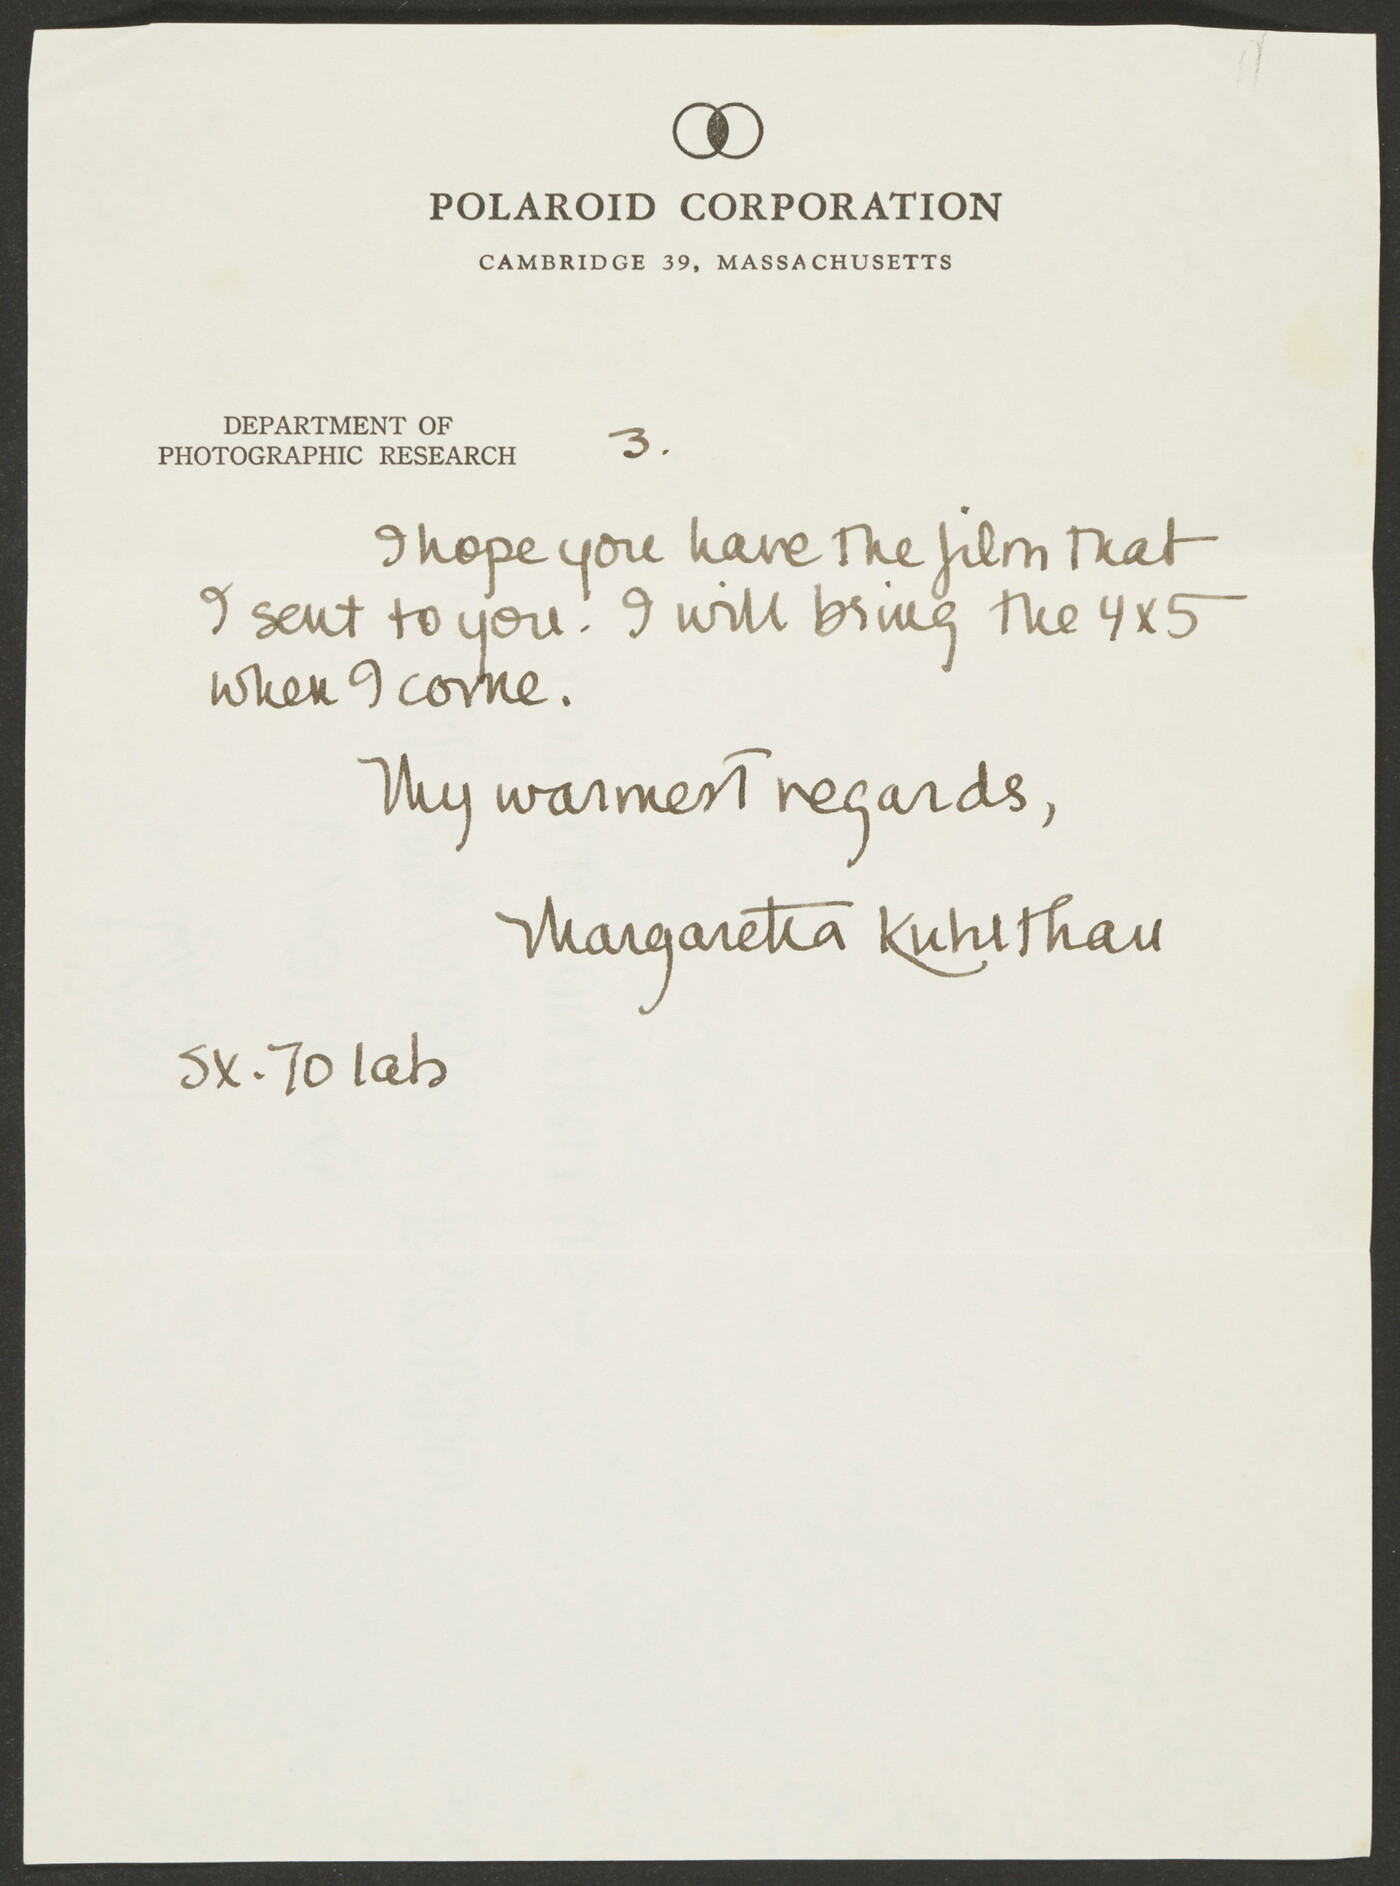 POLAROID CORPORATION
CAMBRIDGE 39, MASSACHUSETTS
DEPARTMENT OF
PHOTOGRAPHIC RESEARCH
3.
I hope you have the film that
I sent to you. I will bring the 4x5
when I come.
My warmest regards,
Margaretta Kuhlthau
SX-70 lab